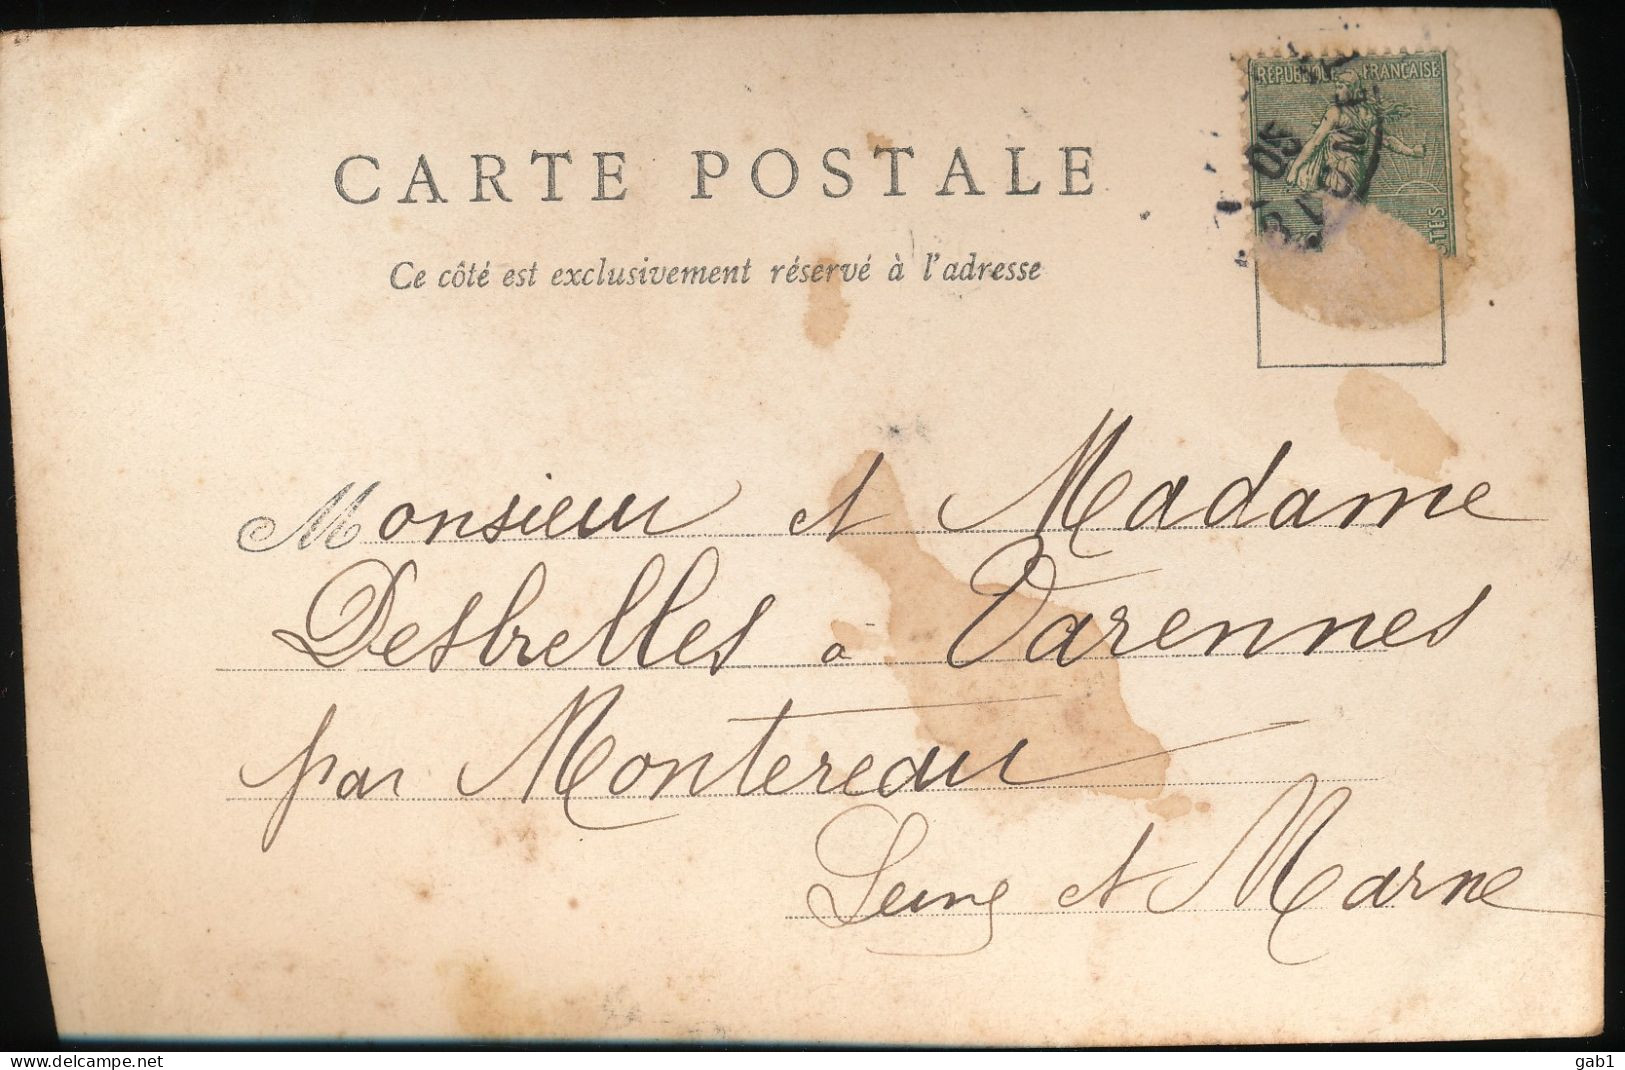 RÉPUBLIQUE FRANÇAISE
05
CARTE POSTALE
Ce côté est exclusivement réservé à l'adresse
Monsieur et Madame
Desbrelles à Varennes
par Montereau
Seine et Marne
https://www.delcampe.net
gab1